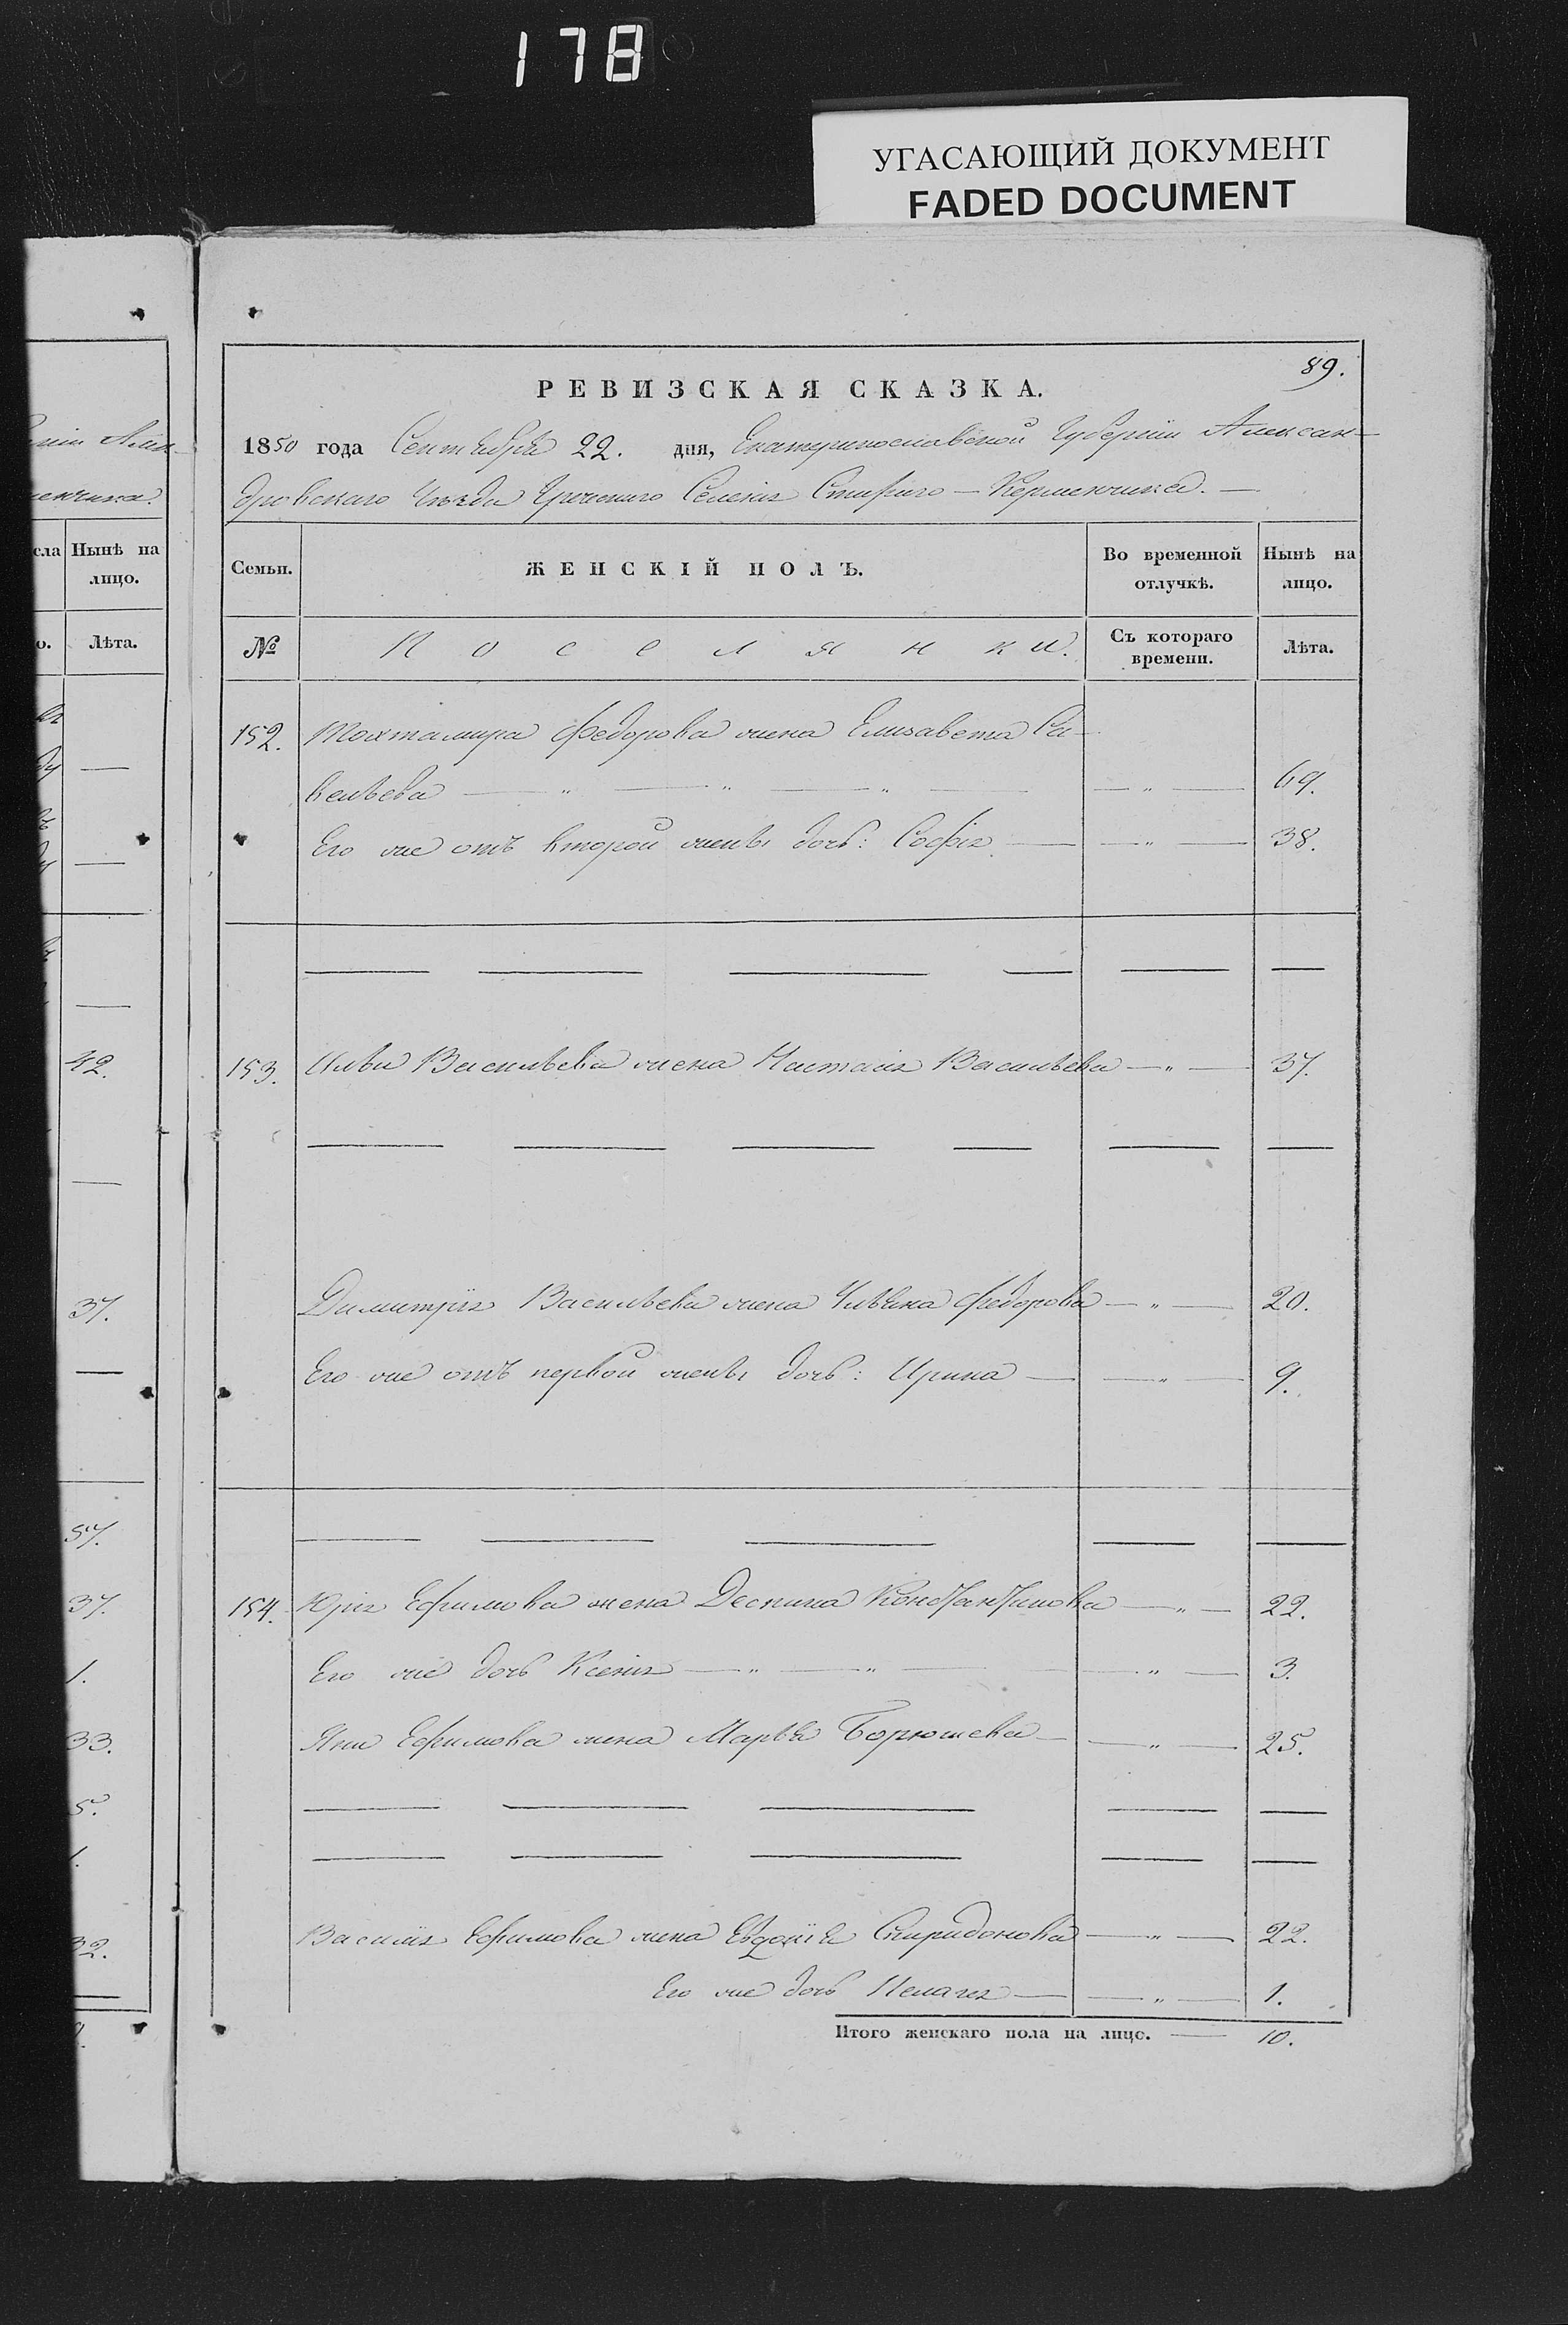 178
УГАСАЮЩИЙ ДОКУМЕНТ
FADED DOCUMENT
89.
РЕВИЗСКАЯ СКАЗКА.
1850 года Сентября 22. дня, Екатеринославской Губерніи Алексан-
дровскаго Уѣзда Греческаго Селенія Стараго-Керменчика.
Семьи.
ЖЕНСКІЙ ПОЛЪ.
Во временной отлучкѣ.
Нынѣ на лицо.
№
Поселянки.
Съ котораго времени.
Лѣта.
152. Тохтамыра Федорова жена Елизавета Са-
вельева — " — " — " — — " — 69.
Его же отъ второй жены дочь: Софія — — " — 38.
153. Ильи Васильева жена Настасія Васильева — " — 37.
Димитрія Васильева жена Ульяна Федорова — " — 20.
Его же отъ первой жены дочь: Ирина — — " — 9.
154. Юрія Ефимова жена Деспина Константинова — " — 22.
Его же дочь Ксенія — " — " — — " — 3.
Яни Ефимова жена Марья Борюшева — — " — 25.
Василія Ефимова жена Евдокія Спиридонова — " — 22.
Его же дочь Пелагея — — " — 1.
Итого женскаго пола на лицо. — 10.
сла
Нынѣ на
лицо.
о.
Лѣта.
42.
37.
57.
37.
1.
33.
5.
1.
32.